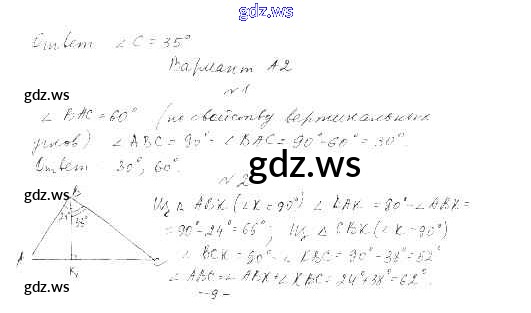 gdz.ws
Ответ ∠C = 35°
Вариант А2
gdz.ws
№1
∠BAC = 60° (по свойству вертикальных
углов) ∠ABC = 90° - ∠BAC = 90° - 60° = 30°.
Ответ: 30°; 60°.
gdz.ws
№2
gdz.ws
B
24° 38°
A K C
Из △ABK (∠K = 90°) ∠BAK = 90° - ∠ABK =
= 90° - 24° = 66°; Из △CBK (∠K - 90°)
∠BCK = 90° - ∠KBC = 90° - 38° = 52°
∠ABC = ∠ABK + ∠KBC = 24° + 38° = 62°.
gdz.ws
-9-